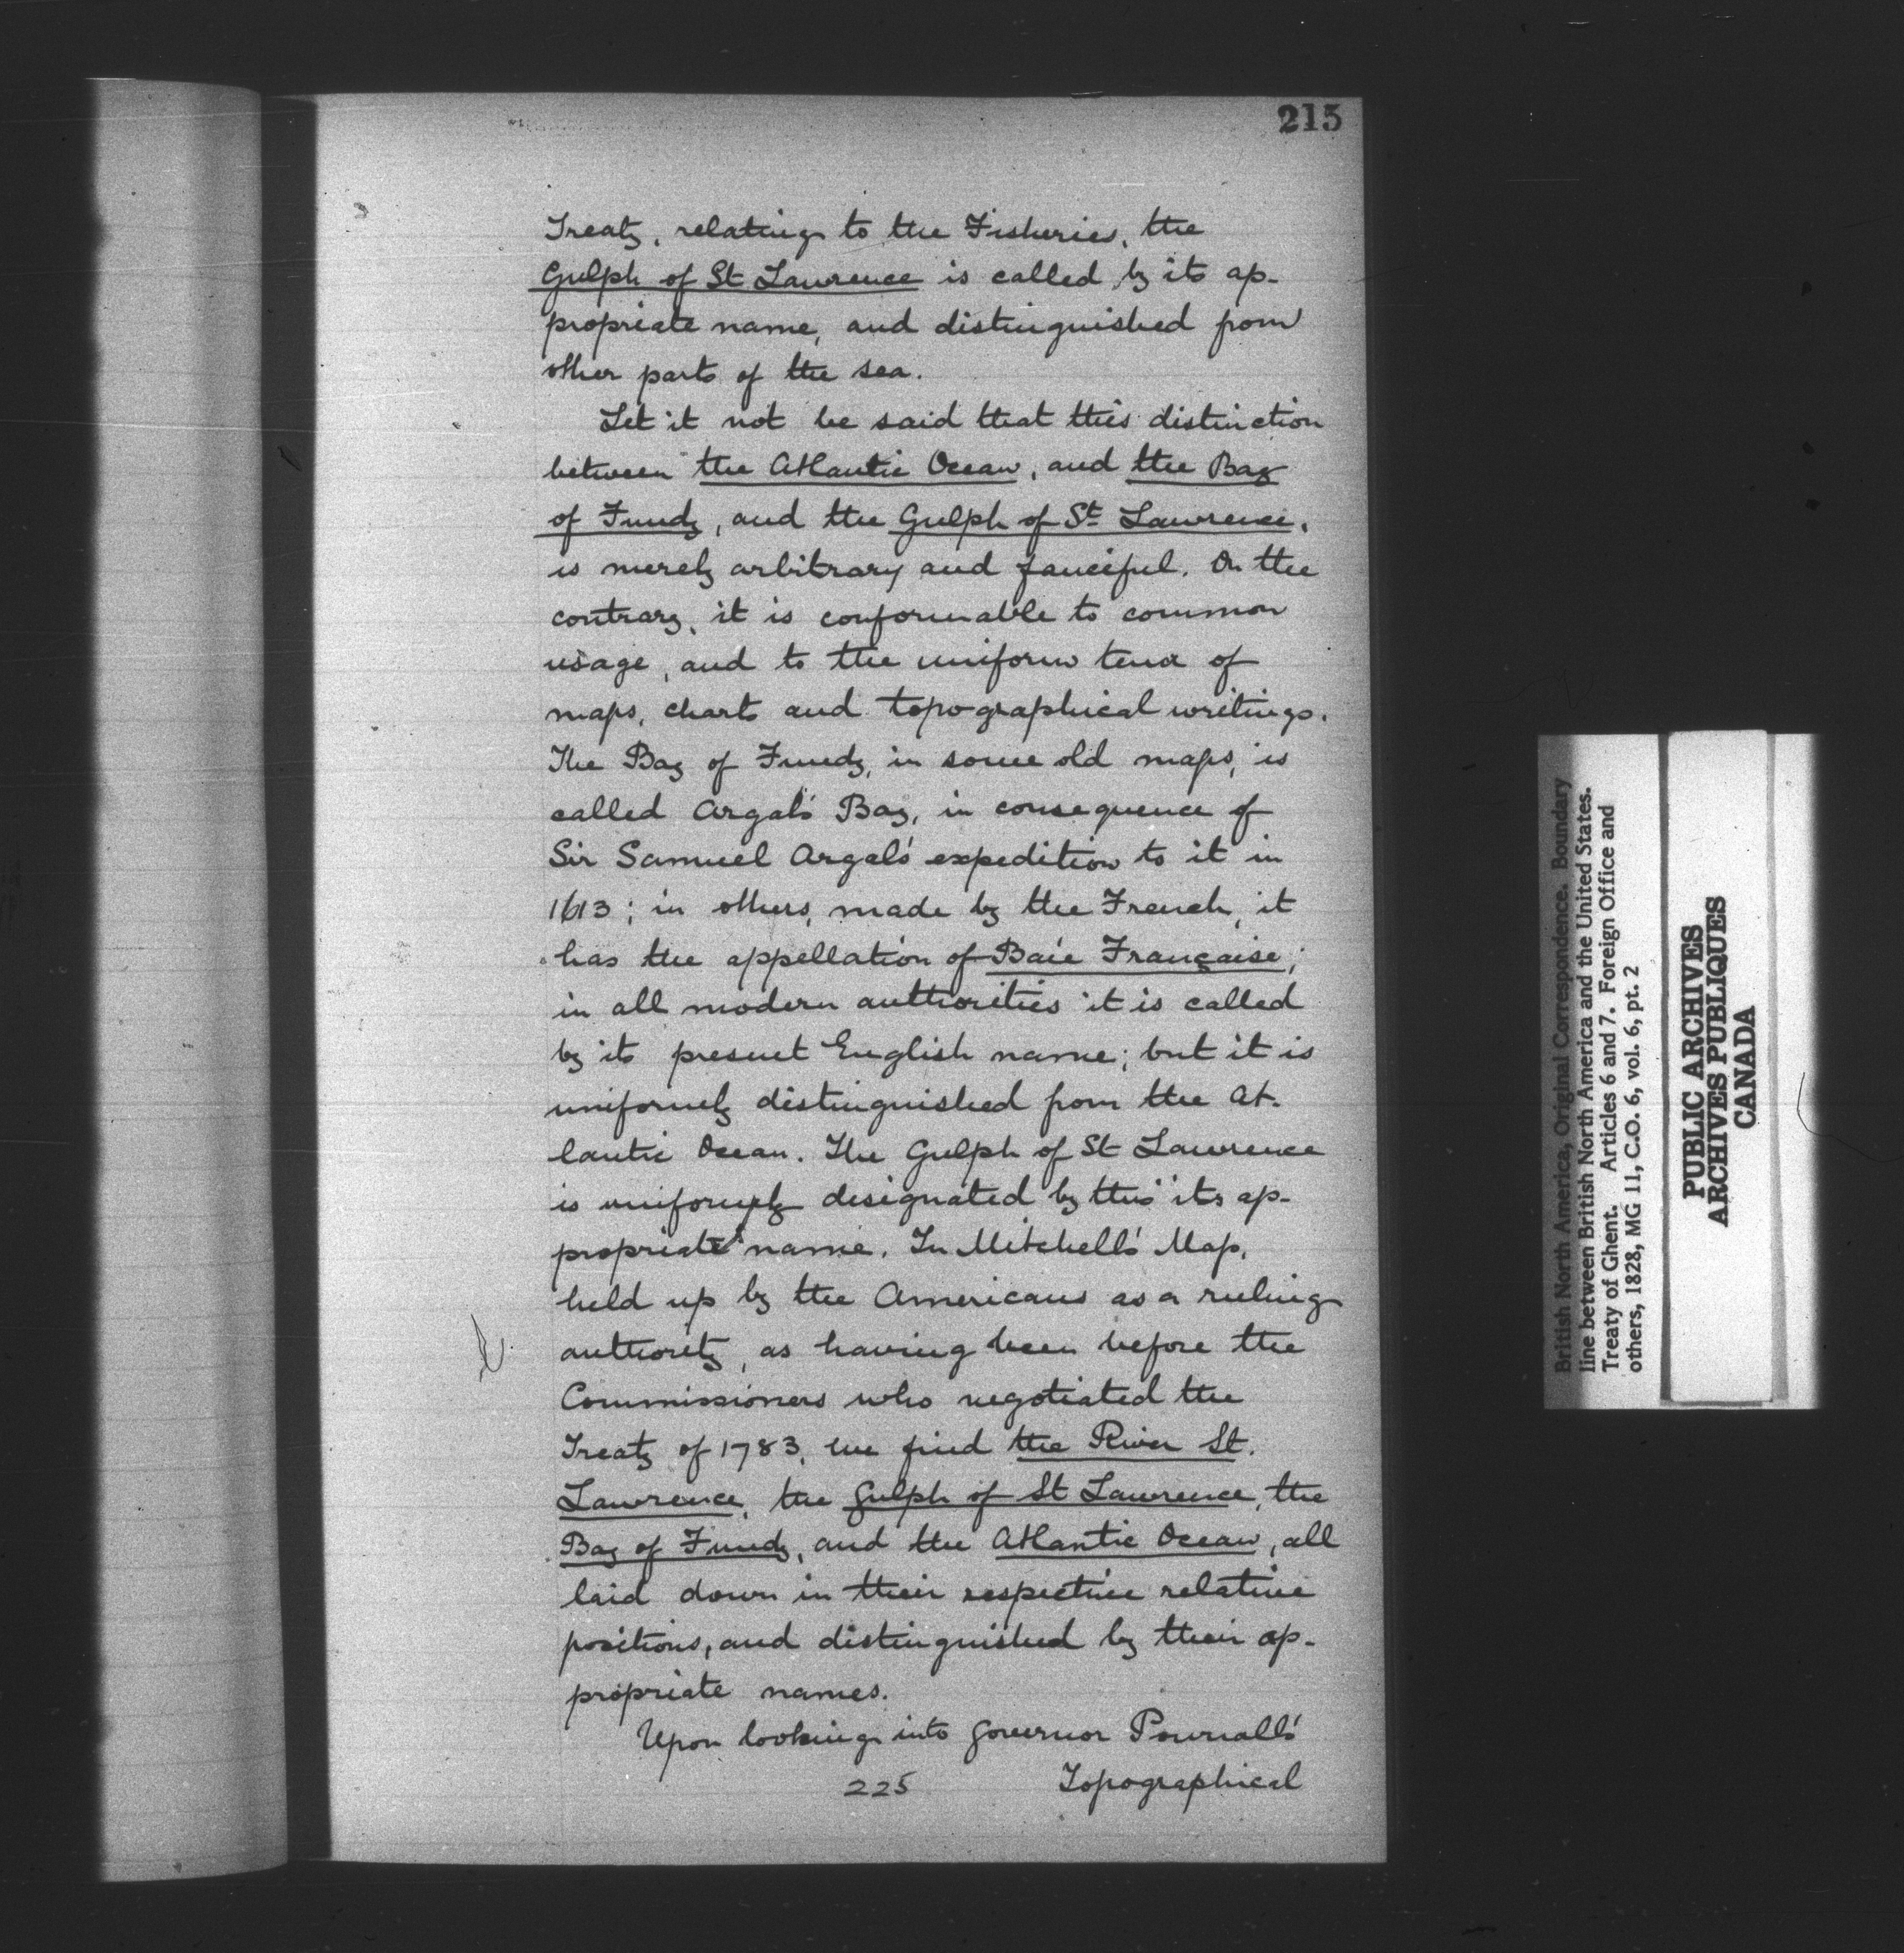 215
Treaty, relating to the Fisheries, the
Gulph of St Lawrence is called by its ap-
propriate name, and distinguished from
other parts of the sea.
Let it not be said that this distinction
between the Atlantic Ocean, and the Bay
of Fundy, and the Gulph of St Lawrence,
is merely arbitrary and fanciful. On the
contrary, it is conformable to common
usage, and to the uniform tenor of
maps, charts and topographical writings.
The Bay of Fundy, in some old maps, is
called Argal's Bay, in consequence of
Sir Samuel Argal's expedition to it in
1613; in others, made by the French, it
has the appellation of Baie Française;
in all modern authorities it is called
by its present English name; but it is
uniformly distinguished from the At-
lantic Ocean. The Gulph of St Lawrence
is uniformly designated by this its ap-
propriate name. In Mitchell's Map,
held up by the Americans as a ruling
authority, as having been before the
Commissioners who negotiated the
Treaty of 1783, we find the River St.
Lawrence, the Gulph of St Lawrence, the
Bay of Fundy, and the Atlantic Ocean, all
laid down in their respective relative
positions, and distinguished by their ap-
propriate names.
Upon looking into Governor Pownall's
225 Topographical
British North America, Original Correspondence. Boundary
line between British North America and the United States.
Treaty of Ghent. Articles 6 and 7. Foreign Office and
others, 1828, MG 11, C.O. 6, vol. 6, pt. 2
PUBLIC ARCHIVES
ARCHIVES PUBLIQUES
CANADA